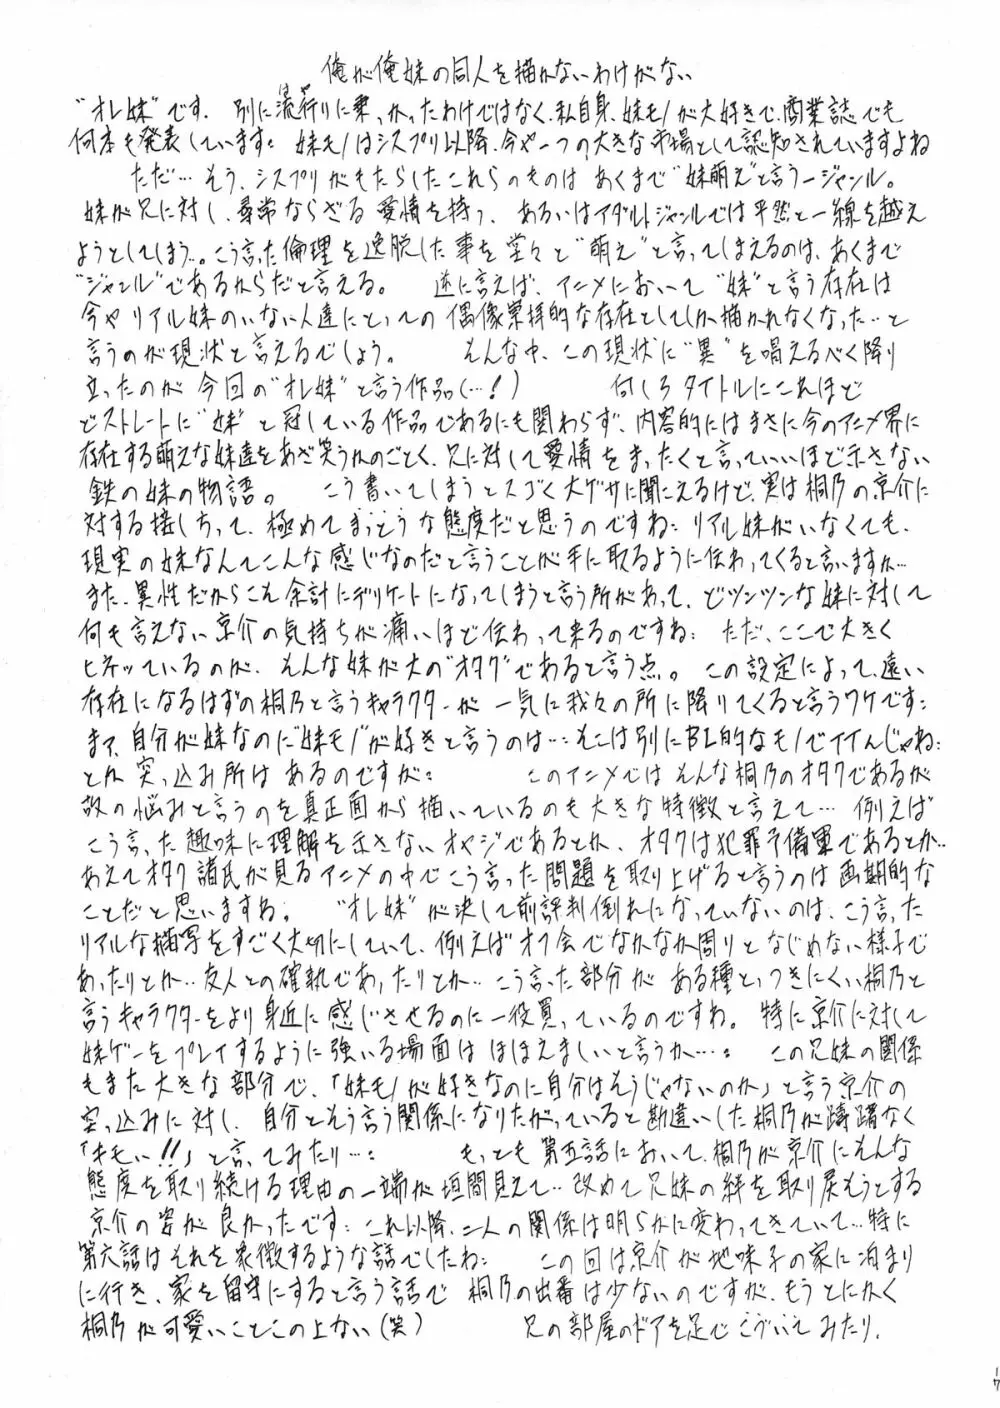 俺が俺妹の同人を描かないわけがない
"オレ妹"です. 別に流行(はや)りに乗っかったわけではなく、私自身、妹モノが大好きで、商業誌でも
何本も発表しています: 妹モノはシスプリ以降、今や一つの大きな市場として認知されていますよね
ただ…そう、シスプリがもたらしたこれらのものは あくまで"妹萌え"と言う一ジャンル。
妹が兄に対し、尋常ならざる愛情を持つ、あるいはアダルトジャンルでは平然と一線を越え
ようとしてしまう…。こう言った倫理を逸脱した事を堂々と"萌え"と言ってしまえるのは、あくまで
"ジャンル"であるからだと言える。 逆に言えば、アニメにおいて"妹"と言う存在は
今やリアル妹のいない人達にとっての偶像崇拝的な存在としてしか描かれなくなった…と
言うのが現状と言えるでしょう。 そんな中、この現状に"異"を唱えるべく降り
立ったのが 今回の"オレ妹"と言う作品(…!) 何しろタイトルにこれほど
どストレートに"妹"と冠している作品であるにも関わらず、内容的にはまさに今のアニメ界に
存在する萌えな妹達をあざ笑うかのごとく、兄に対して愛情をまったくと言っていいほど示さない
鉄の妹の物語。 こう書いてしまうとスゴく大ゲサに聞こえるけど、実は桐乃の京介に
対する接し方って、極めてまっとうな態度だと思うのですね: リアル妹がいなくても、
現実の妹なんてこんな感じなのだと言うことが手に取るように伝わってくると言いますか…
また、異性だからこそ余計にデリケートになってしまうと言う所があって、どツンツンな妹に対して
何も言えない京介の気持ちが痛いほど伝わって来るのですね: ただ、ここで大きく
ヒネっているのが、そんな妹が大の"オタク"であると言う点。 この設定によって、遠い
存在になるはずの桐乃と言うキャラクターが 一気に我々の所に降りてくると言うワケです:
まぁ、自分が妹なのに"妹モノ"が好きと言うのは…:そこは別にBL的なモノでイイんじゃね:
とか突っ込み所はあるのですが: このアニメではそんな桐乃のオタクであるが
故の悩みと言うのを真正面から描いているのも大きな特徴と言えて… 例えば
こう言った趣味に理解を示さないオヤジであるとか、オタクは犯罪予備軍であるとか‥
あえてオタク諸氏が見るアニメの中でこう言った問題を取り上げると言うのは画期的な
ことだと思いますね。 "オレ妹"が決して前評判倒れになっていないのは、こう言った
リアルな描写をすごく大切にしていて、例えばオフ会でなかなか周りとなじめない様子で
あったりとか‥友人との確執であったりとか‥こう言った部分が ある種とっつきにくい桐乃と
言うキャラクターをより身近に感じさせるのに一役買っているのですね。 特に京介に対して
妹ゲーをプレイするように強いる場面はほほえましいと言うか…: この兄妹の関係
もまた大きな部分で、「妹モノが好きなのに自分はそうじゃないのか」と言う京介の
突っ込みに対し、自分とそう言う関係になりたがっていると勘違いした桐乃が躊躇なく
「キモい!!」と言ってみたり…: もっとも第五話において、桐乃が京介にそんな
態度を取り続ける理由の一端が垣間見えて‥改めて兄妹の絆を取り戻そうとする
京介の姿が良かったです: これ以降、二人の関係は明らかに変わってきていて…特に
第六話はそれを象徴するような話でしたね: この回は京介が地味子の家に泊まり
に行き、家を留守にすると言う話で 桐乃の出番は少ないのですが、もうとにかく
桐乃が可愛いことこの上ない(笑) 兄の部屋のドアを足でこづいてみたり、
17